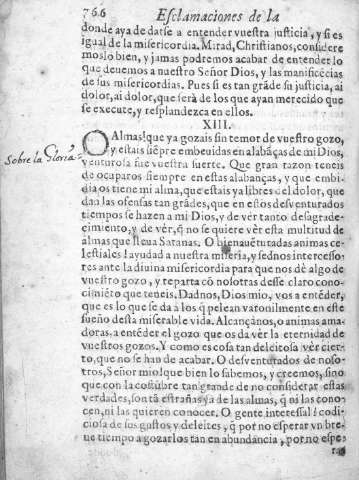 766 Esclamaciones de la
donde aya de darse a entender vuestra justicia, y si es
igual de la misericordia. Mirad, Christianos, considere
moslo bien, y jamas podremos acabar de entender lo
que deuemos a nuestro Señor Dios, y las manificẽcias
de sus misericordias. Pues si es tan grãde su justicia, ai
dolor, ai dolor, que serà de los que ayan merecido que
se execute, y resplandezca en ellos.
XIII.
Sobre la Gloria.
O Almas! que ya gozais sin temor de vuestro gozo,
y estais siẽpre embeuidas en alabãças de mi Dios,
venturosa fue vuestra suerte. Que gran razon teneis
de ocuparos siempre en estas alabanças, y que embi-
dia os tiene mi alma, que estais ya libres del dolor, que
dan las ofensas tan grãdes, que en estos desuenturados
tiempos se hazen a mi Dios, y de vèr tanto desagrade-
cimiento, y de vèr, q̃ no se quiere vèr esta multitud de
almas que lleua Satanas. O bienauẽturadas animas ce-
lestiales! ayudad a nuestra miseria, y sednos intercesso-
res ante la diuina misericordia para que nos dè algo de
vuestro gozo, y reparta cõ nosotras desse claro cono-
cimiẽto que teneis. Dadnos, Dios mio, vos a entẽder,
que es lo que se da a los q̃ pelean varonilmente en este
sueño desta miserable vida. Alcançànos, o animas ama-
doras, a entẽder el gozo que os da vèr la eternidad de
vuestros gozos. Y como es cosa tan deleitosa vèr cier-
to, que no se han de acabar. O desventurados de noso-
tros, Señor mio! que bien lo sabemos, y creemos, sino
que con la costũbre tan grande de no considerar estas
verdades, son tã estrañas ya de las almas, q̃ ni las cono-
cen, ni las quieren conocer. O gente interessal! codi-
ciosa de sus gustos y deleites, q̃ por no esperar vn bre-
ue tiempo a gozarlos tan en abundancia, por no espe-
rar